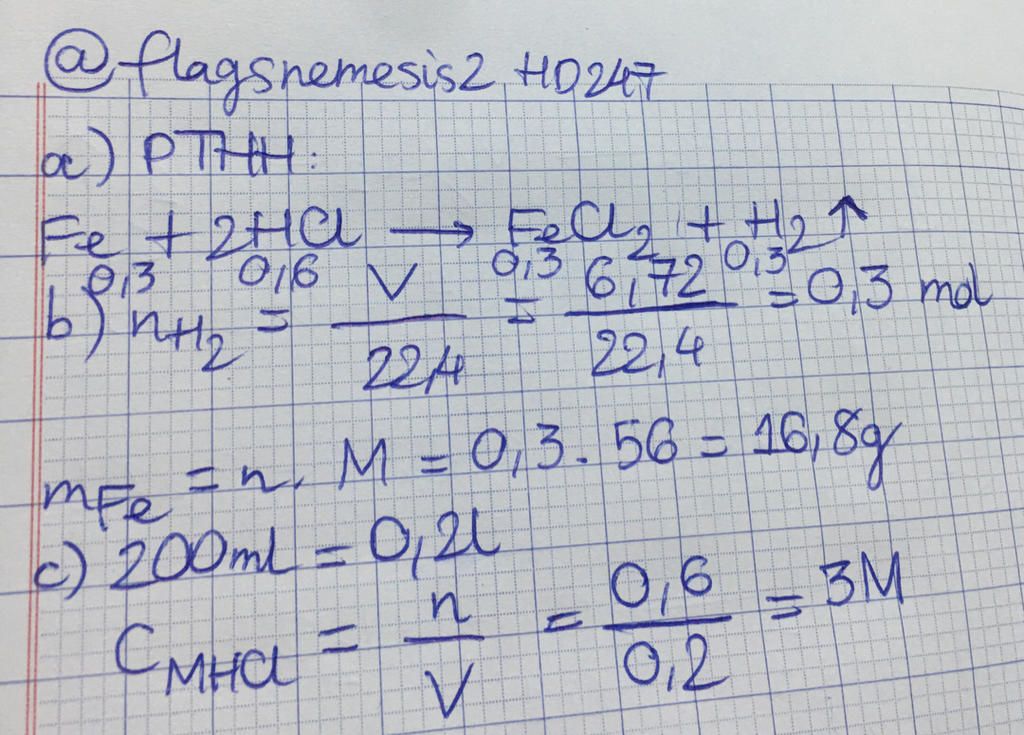 @flagsnemesis2 HD247
a) PTHH:
Fe + 2HCl → FeCl2 + H2↑
0,3 0,6 0,3 0,3
b) nH2 = V/22,4 = 6,72/22,4 = 0,3 mol
mFe = n. M = 0,3. 56 = 16,8g
c) 200ml = 0,2l
CMHCl = n/V = 0,6/0,2 = 3M